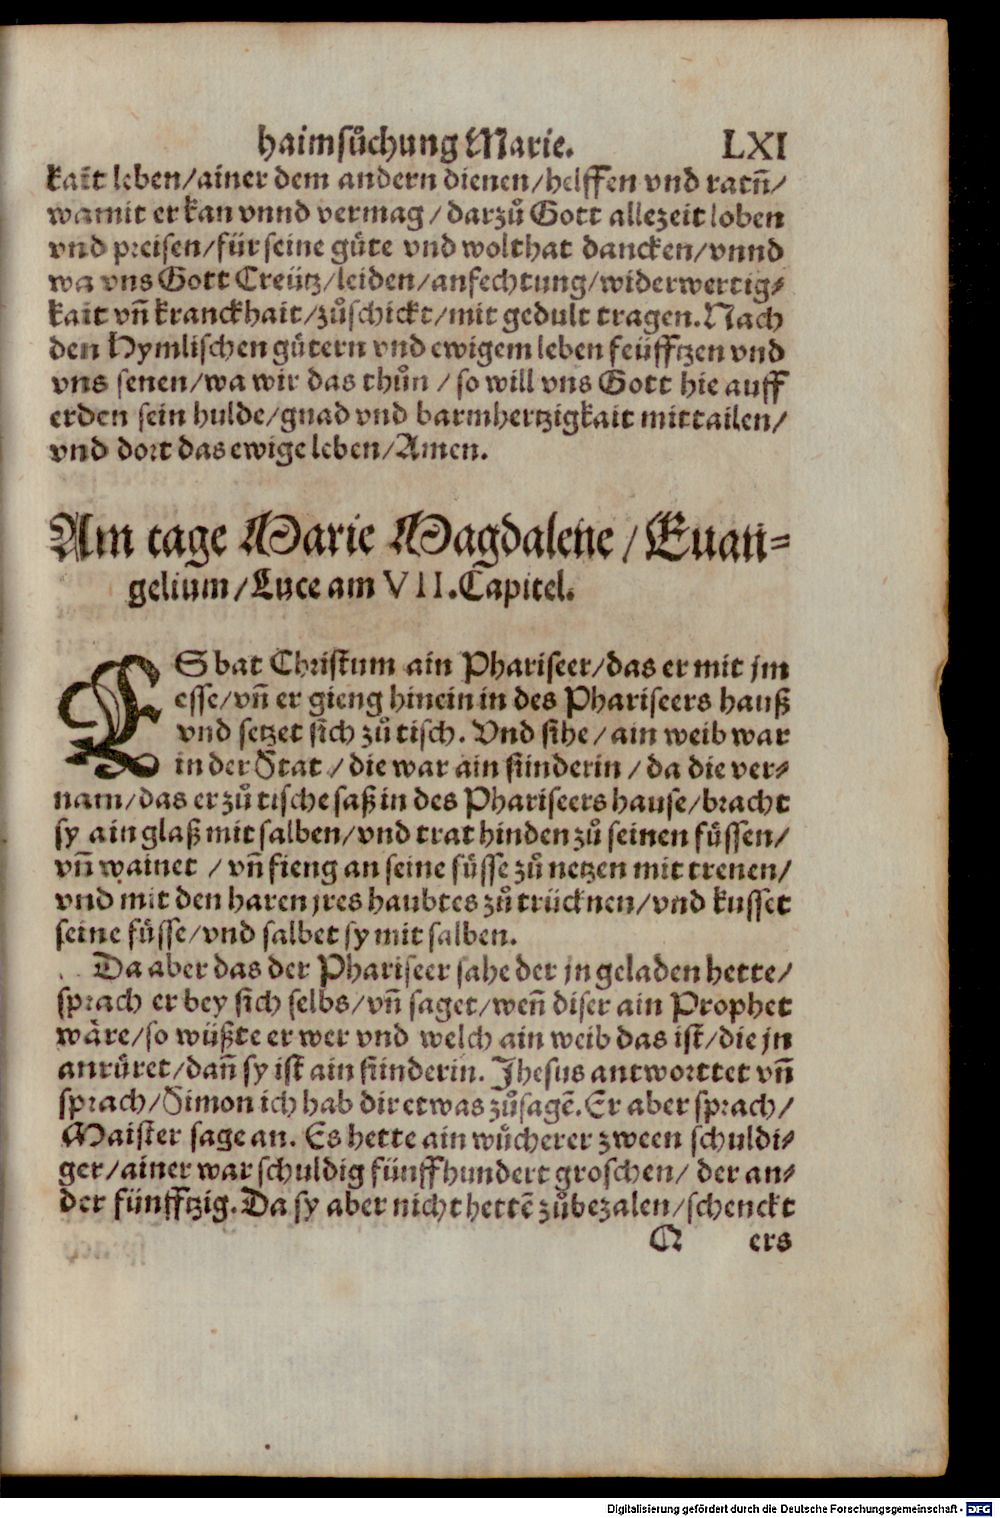 haimsůchung Marie. LXI
kait leben/ainer dem andern dienen/helffen vnd ratn̄/
wamit er kan vnnd vermag/darzů Gott allezeit loben
vnd preisen/für seine gůte vnd wolthat dancken/vnnd
wa vns Gott Creütz/leiden/anfechtung/widerwertig⸗
kait vn̄ kranckhait/zůschickt/mit gedult tragen. Nach
den Hymlischen gůtern vnd ewigem leben seüfftzen vnd
vns senen/wa wir das thůn/so will vns Gott hie auff
erden sein hulde/gnad vnd barmhertzigkait mittailen/
vnd dort das ewige leben/Amen.
Am tage Marie Magdalene/Euan⸗
gelium/Luce am VII. Capitel.
ES bat Christum ain Phariseer/das er mit jm
esse/vn̄ er gieng hinein in des Phariseers hauß
vnd setzet sich zů tisch. Vnd sihe/ain weib war
in der Stat/die war ain sünderin/da die ver⸗
nam/das er zů tische saß in des Phariseers hause/bracht
sy ain glaß mit salben/vnd trat hinden zů seinen fůssen/
vn̄ wainet/vn̄ fieng an seine fůsse zů netzen mit trenen/
vnd mit den haren jres haubtes zů trücknen/vnd kusset
seine fůsse/vnd salbet sy mit salben.
Da aber das der Phariseer sahe der jn geladen hette/
sprach er bey sich selbs/vn̄ saget/wen̄ diser ain Prophet
wäre/so wüßte er wer vnd welch ain weib das ist/die jn
anrůret/dan̄ sy ist ain sünderin. Jhesus antworttet vn̄
sprach/Simon ich hab dir etwas zůsagē. Er aber sprach/
Maister sage an. Es hette ain wůcherer zween schuldi⸗
ger/ainer war schuldig fünffhundert groschen/der an⸗
der fünfftzig. Da sy aber nicht hettē zůbezalen/schenckt
Q ers
Digitalisierung gefördert durch die Deutsche Forschungsgemeinschaft - DFG